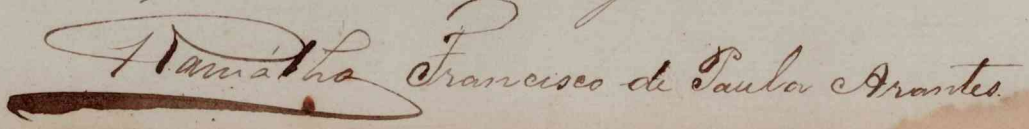 Ramálho Francisco de Paula Arantes.